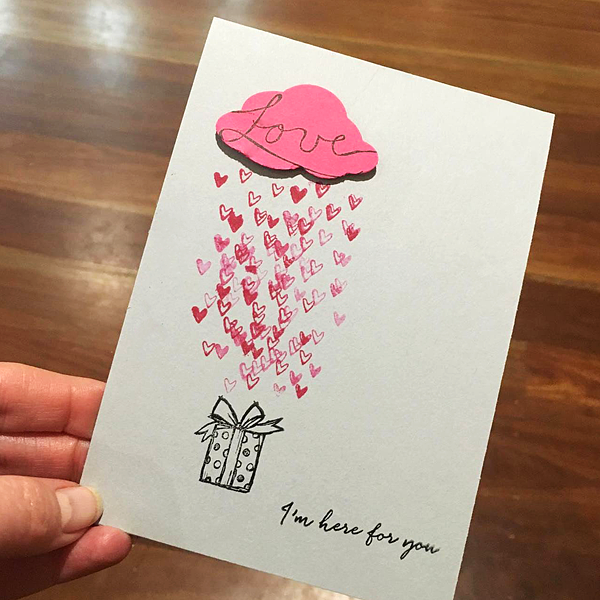 Love
I'm here for you